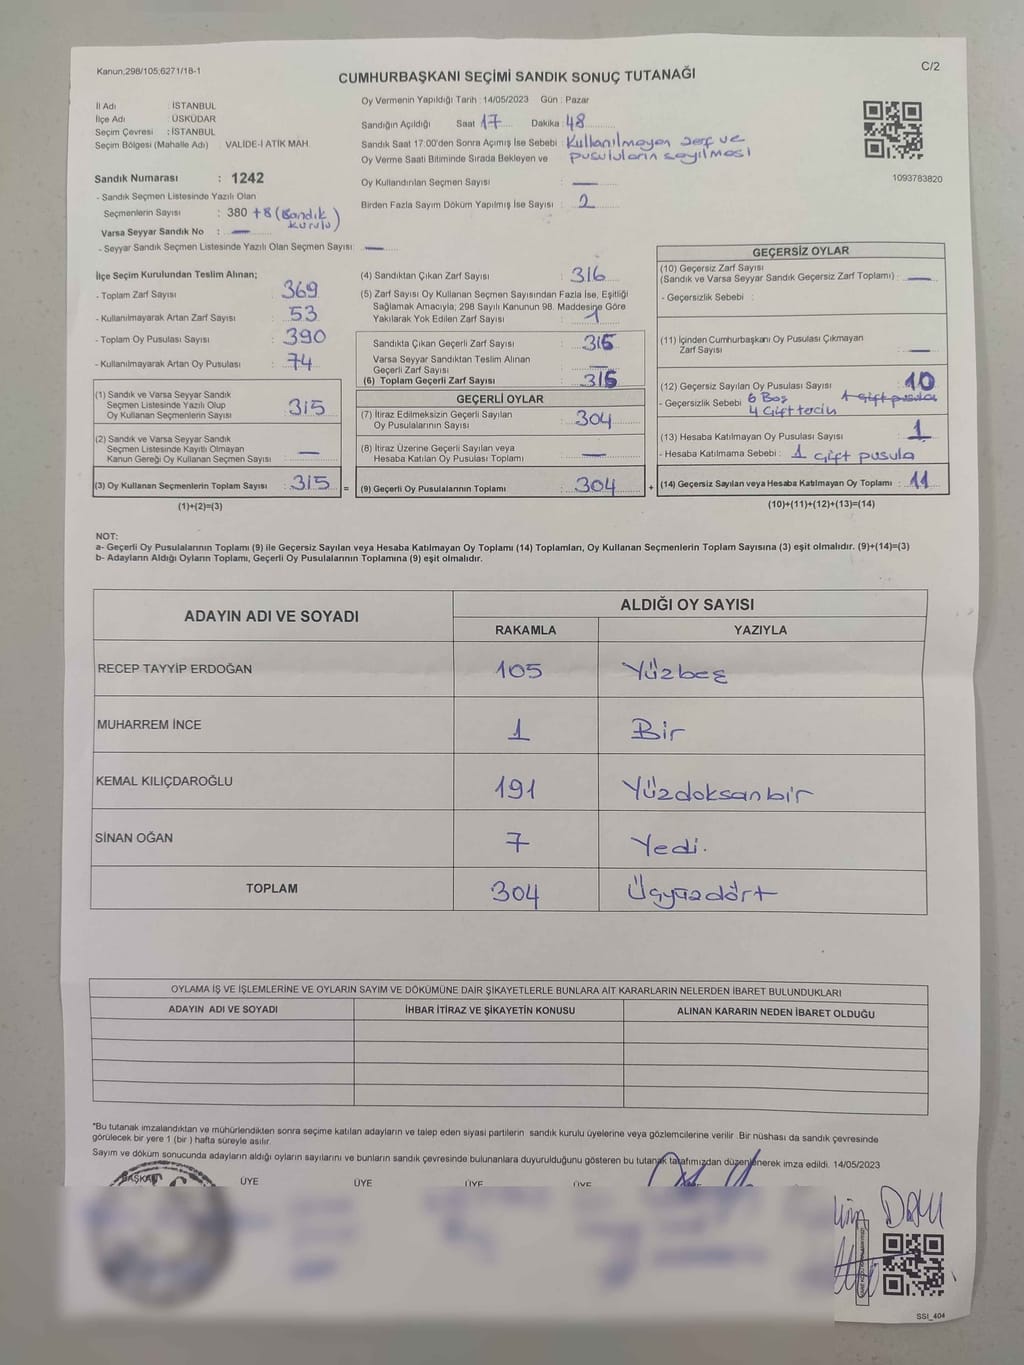 Kanun;298/105;6271/18-1
C/2
CUMHURBAŞKANI SEÇİMİ SANDIK SONUÇ TUTANAĞI
İl Adı : İSTANBUL
İlçe Adı : ÜSKÜDAR
Seçim Çevresi : İSTANBUL
Seçim Bölgesi (Mahalle Adı) : VALİDE-İ ATİK MAH.
Sandık Numarası : 1242
- Sandık Seçmen Listesinde Yazılı Olan
Seçmenlerin Sayısı : 380 +8 (Sandık kurulu)
Varsa Seyyar Sandık No : —
- Seyyar Sandık Seçmen Listesinde Yazılı Olan Seçmen Sayısı: —
Oy Vermenin Yapıldığı Tarih : 14/05/2023 Gün : Pazar
Sandığın Açıldığı Saat 17 Dakika : 48
Sandık Saat 17:00'den Sonra Açımış İse Sebebi : Kullanılmayan zarf ve
Oy Verme Saati Bitiminde Sırada Bekleyen ve pusuluların sayılması
Oy Kullandırılan Seçmen Sayısı : —
Birden Fazla Sayım Döküm Yapılmış İse Sayısı : 2
1093783820
İlçe Seçim Kurulundan Teslim Alınan;
- Toplam Zarf Sayısı : 369
- Kullanılmayarak Artan Zarf Sayısı : 53
- Toplam Oy Pusulası Sayısı : 390
- Kullanılmayarak Artan Oy Pusulası : 74
(1) Sandık ve Varsa Seyyar Sandık
Seçmen Listesinde Yazılı Olup
Oy Kullanan Seçmenlerin Sayısı : 315
(2) Sandık ve Varsa Seyyar Sandık
Seçmen Listesinde Kayıtlı Olmayan
Kanun Gereği Oy Kullanan Seçmen Sayısı : —
(3) Oy Kullanan Seçmenlerin Toplam Sayısı : 315 =
(1)+(2)=(3)
(4) Sandıktan Çıkan Zarf Sayısı : 316
(5) Zarf Sayısı Oy Kullanan Seçmen Sayısından Fazla İse, Eşitliği
Sağlamak Amacıyla; 298 Sayılı Kanunun 98. Maddesine Göre
Yakılarak Yok Edilen Zarf Sayısı : 1
Sandıkta Çıkan Geçerli Zarf Sayısı : 315
Varsa Seyyar Sandıktan Teslim Alınan
Geçerli Zarf Sayısı : —
(6) Toplam Geçerli Zarf Sayısı : 315
GEÇERLİ OYLAR
(7) İtiraz Edilmeksizin Geçerli Sayılan
Oy Pusulalarının Sayısı : 304
(8) İtiraz Üzerine Geçerli Sayılan veya
Hesaba Katılan Oy Pusulası Toplamı : —
(9) Geçerli Oy Pusulalarının Toplamı : 304 +
GEÇERSİZ OYLAR
(10) Geçersiz Zarf Sayısı
(Sandık ve Varsa Seyyar Sandık Geçersiz Zarf Toplamı) : —
- Geçersizlik Sebebi :
(11) İçinden Cumhurbaşkanı Oy Pusulası Çıkmayan
Zarf Sayısı : —
(12) Geçersiz Sayılan Oy Pusulası Sayısı : 10
- Geçersizlik Sebebi : 6 Boş 1 çift pusula
4 Çift tercih
(13) Hesaba Katılmayan Oy Pusulası Sayısı : 1
- Hesaba Katılmama Sebebi : 1 çift pusula
(14) Geçersiz Sayılan veya Hesaba Katılmayan Oy Toplamı : 11
(10)+(11)+(12)+(13)=(14)
NOT:
a- Geçerli Oy Pusulalarının Toplamı (9) ile Geçersiz Sayılan veya Hesaba Katılmayan Oy Toplamı (14) Toplamları, Oy Kullanan Seçmenlerin Toplam Sayısına (3) eşit olmalıdır. (9)+(14)=(3)
b- Adayların Aldığı Oyların Toplamı, Geçerli Oy Pusulalarının Toplamına (9) eşit olmalıdır.
ADAYIN ADI VE SOYADI
ALDIĞI OY SAYISI
RAKAMLA YAZIYLA
RECEP TAYYİP ERDOĞAN 105 Yüzbeş
MUHARREM İNCE 1 Bir
KEMAL KILIÇDAROĞLU 191 Yüzdoksanbir
SİNAN OĞAN 7 Yedi.
TOPLAM 304 Üçyüzdört
OYLAMA İŞ VE İŞLEMLERİNE VE OYLARIN SAYIM VE DÖKÜMÜNE DAİR ŞİKAYETLERLE BUNLARA AİT KARARLARIN NELERDEN İBARET BULUNDUKLARI
ADAYIN ADI VE SOYADI İHBAR İTİRAZ VE ŞİKAYETİN KONUSU ALINAN KARARIN NEDEN İBARET OLDUĞU
*Bu tutanak imzalandıktan ve mühürlendikten sonra seçime katılan adayların ve talep eden siyasi partilerin sandık kurulu üyelerine veya gözlemcilerine verilir. Bir nüshası da sandık çevresinde
görülecek bir yere 1 (bir ) hafta süreyle asılır.
Sayım ve döküm sonucunda adayların aldığı oyların sayılarını ve bunların sandık çevresinde bulunanlara duyurulduğunu gösteren bu tutanak tarafımızdan düzenlenerek imza edildi. 14/05/2023
BAŞKAN ÜYE ÜYE ÜYE ÜYE
SSI_404